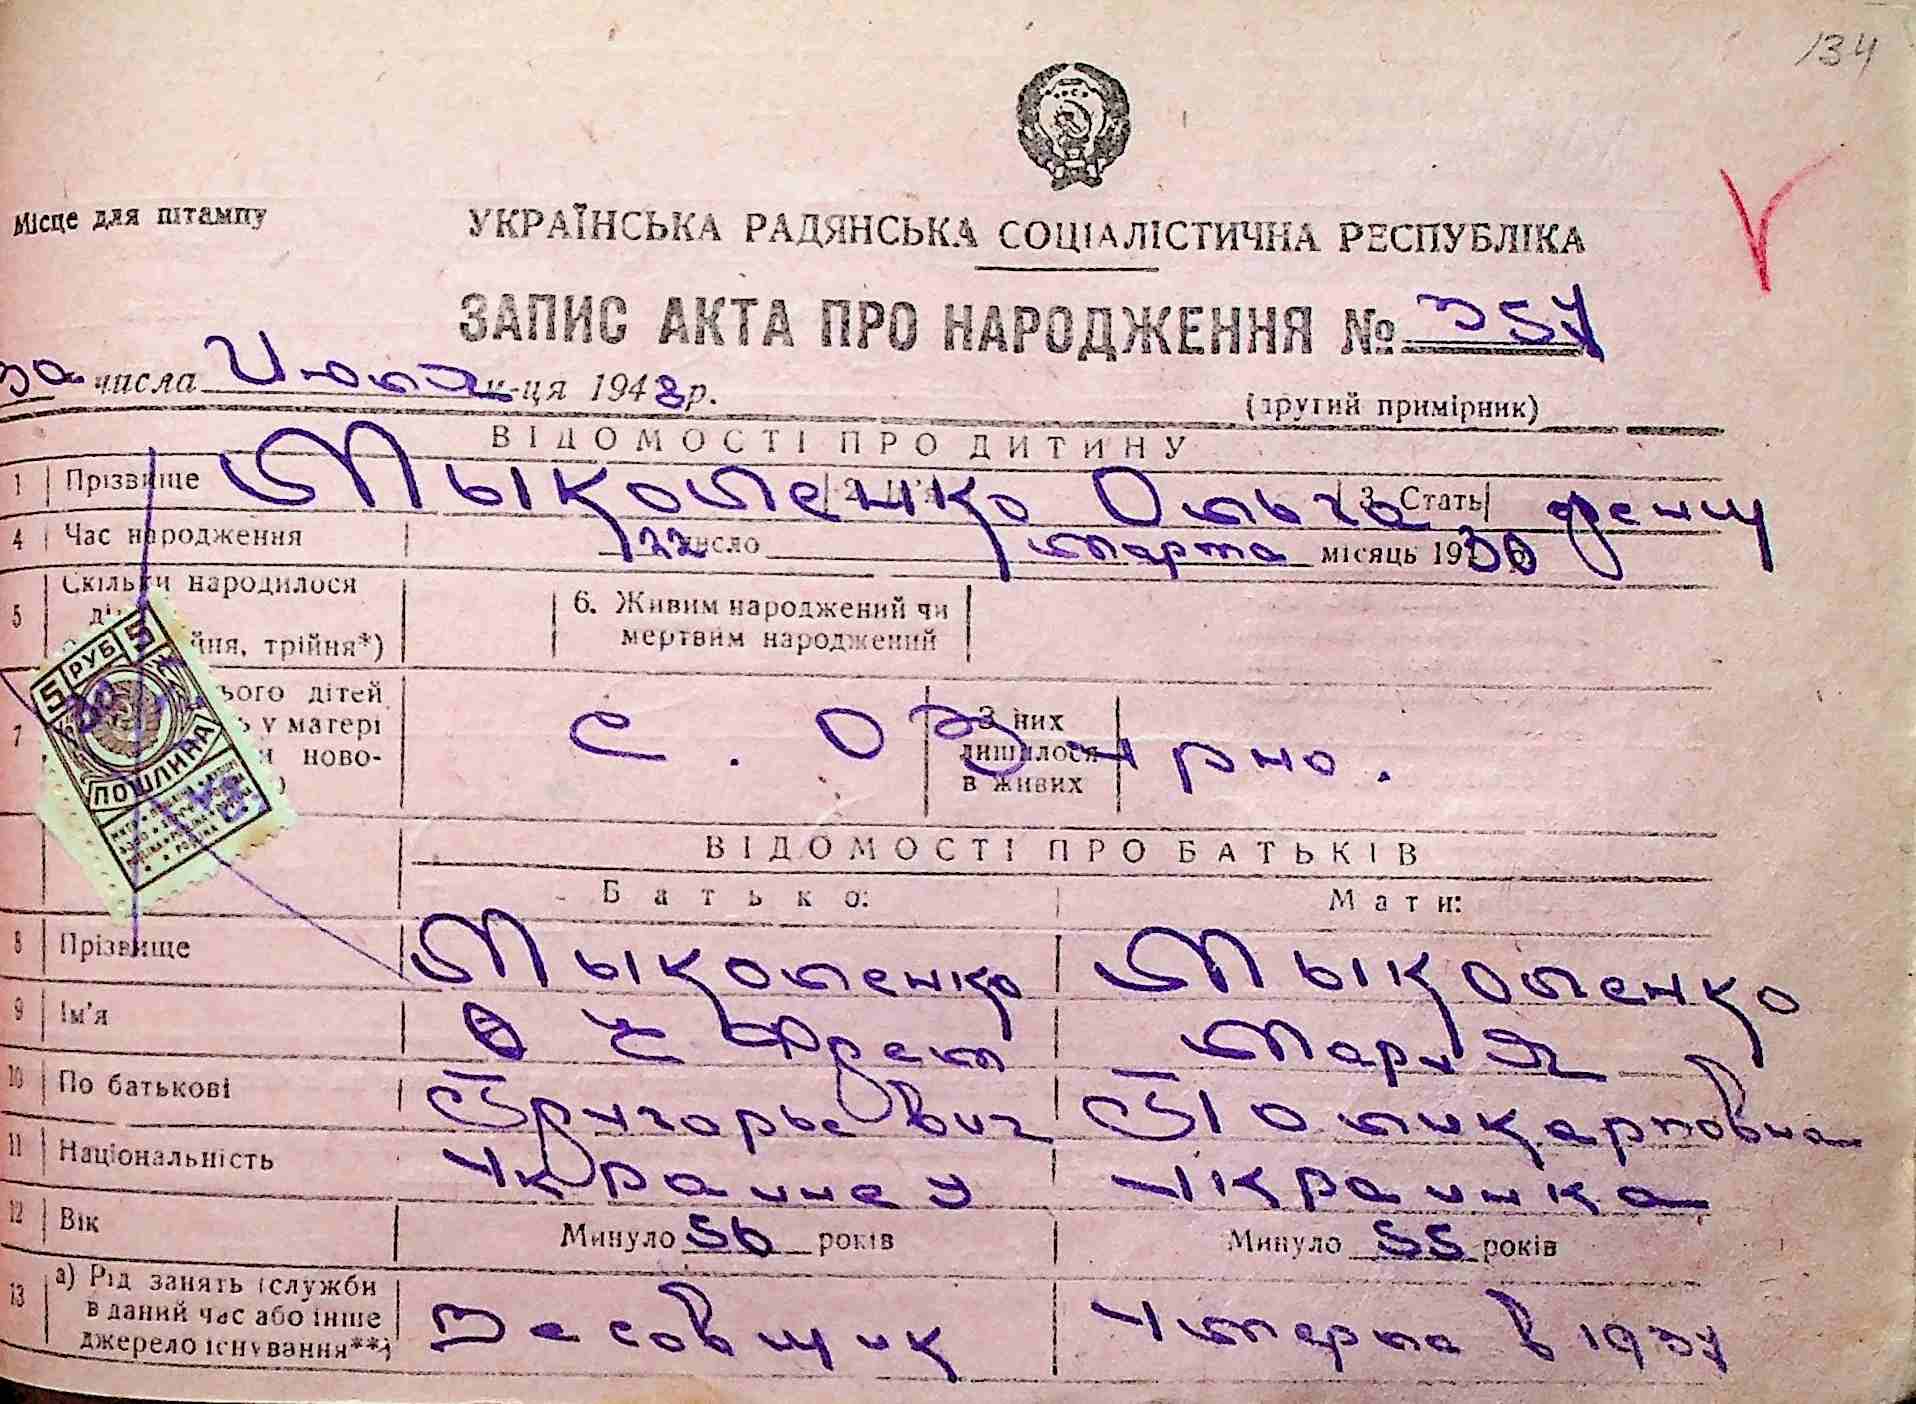 134
Місце для штампу
УКРАЇНСЬКА РАДЯНСЬКА СОЦІАЛІСТИЧНА РЕСПУБЛІКА
ЗАПИС АКТА ПРО НАРОДЖЕННЯ № 357
30 числа Июля м-ця 1948 р.
(другий примірник)
ВІДОМОСТІ ПРО ДИТИНУ
1 Прізвище Мыколенко 2. Ім'я Ольга 3. Стать женщ
4 Час народження 22 число марта місяць 1930
5 Скільки народилося
6. Живим народжений чи мертвим народжений
двійня, трійня*)
7 дітей у матері ново-
с. Озірно.
З них лишилося в живих
5 РУБ 5
ПОШЛИНА
ВІДОМОСТІ ПРО БАТЬКІВ
Батько: Мати:
8 Прізвище Мыколенко Мыколенко
9 Ім'я Мария
10 По батькові Григорьевич Поликарповна
11 Національність Украинец Украинка
12 Вік Минуло 56 років Минуло 55 років
13 а) Рід занять (служби в даний час або інше джерело існування**)
Весовщик Умерла в 1937